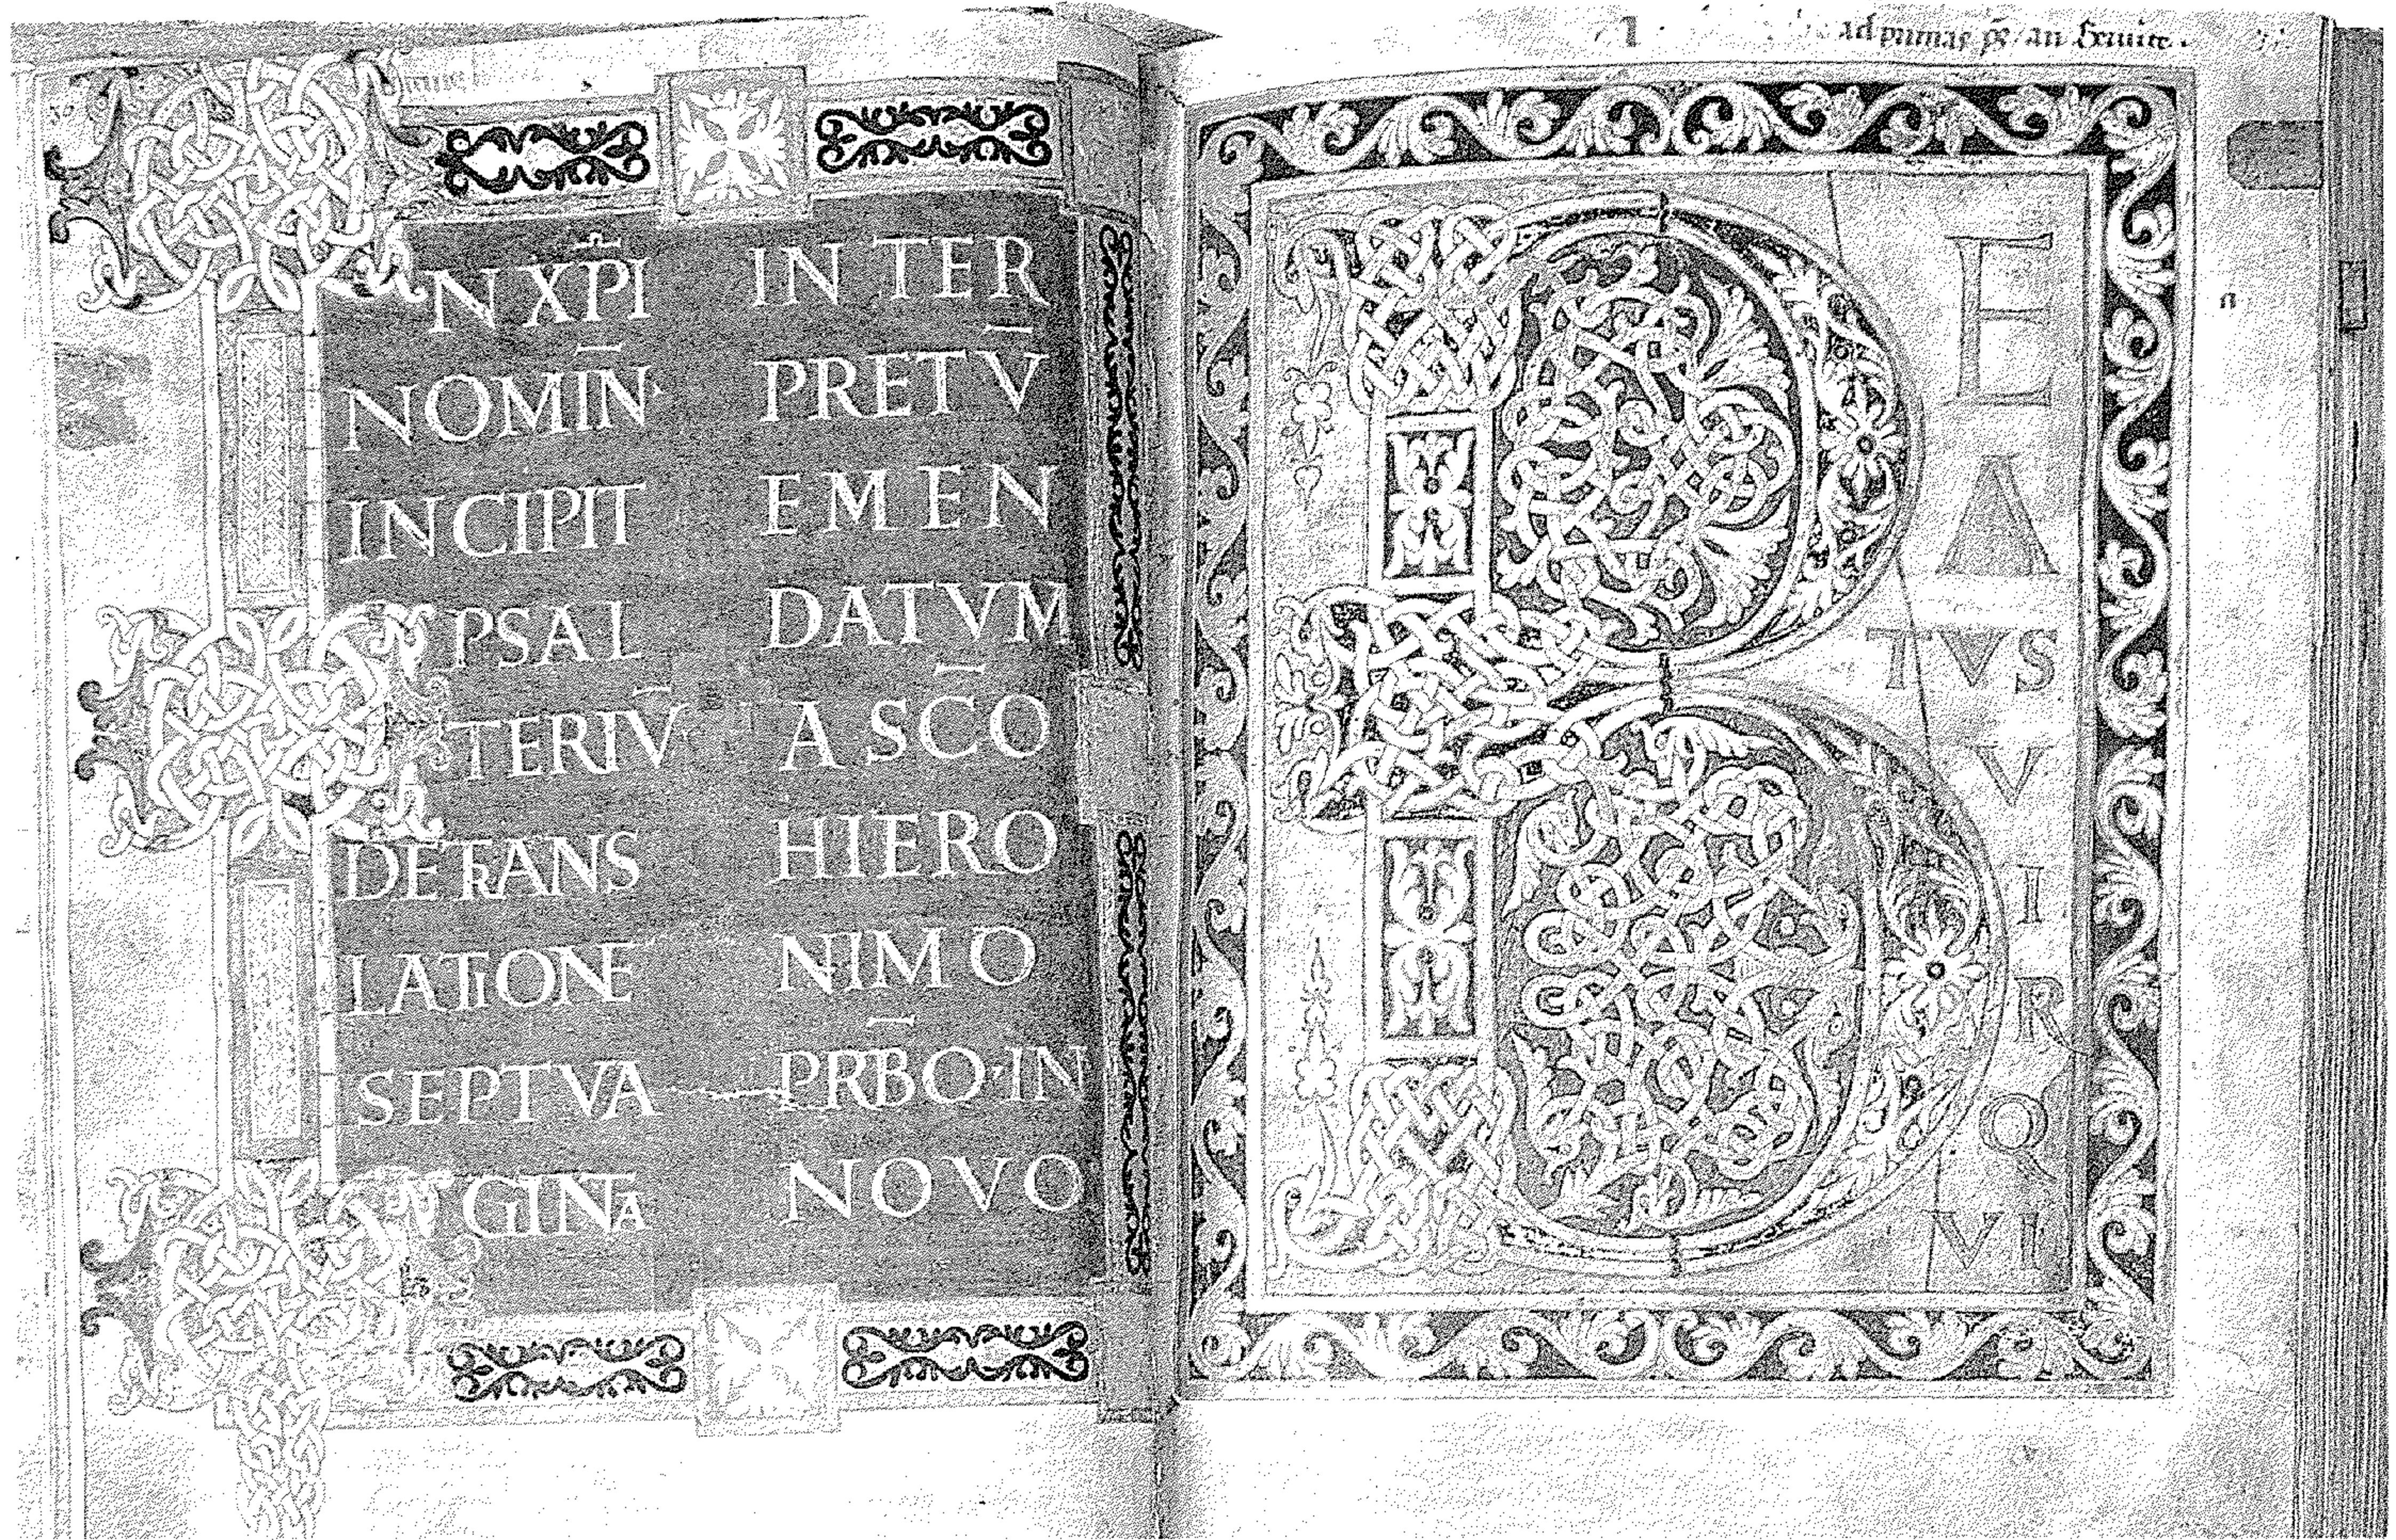 IN XP̄I
NOMIN̄
INCIPIT
PSAL
TERIV̄
DE TRANS
LATIONE
SEPTVA
GINTA
IN TER
PRETV̄
EMEN
DATVM
A SC̄O
HIERO
NIMO
PRB̄O·IN
NOVO
ad primas
B
E
A
TVS
V
I
R
Q
VI